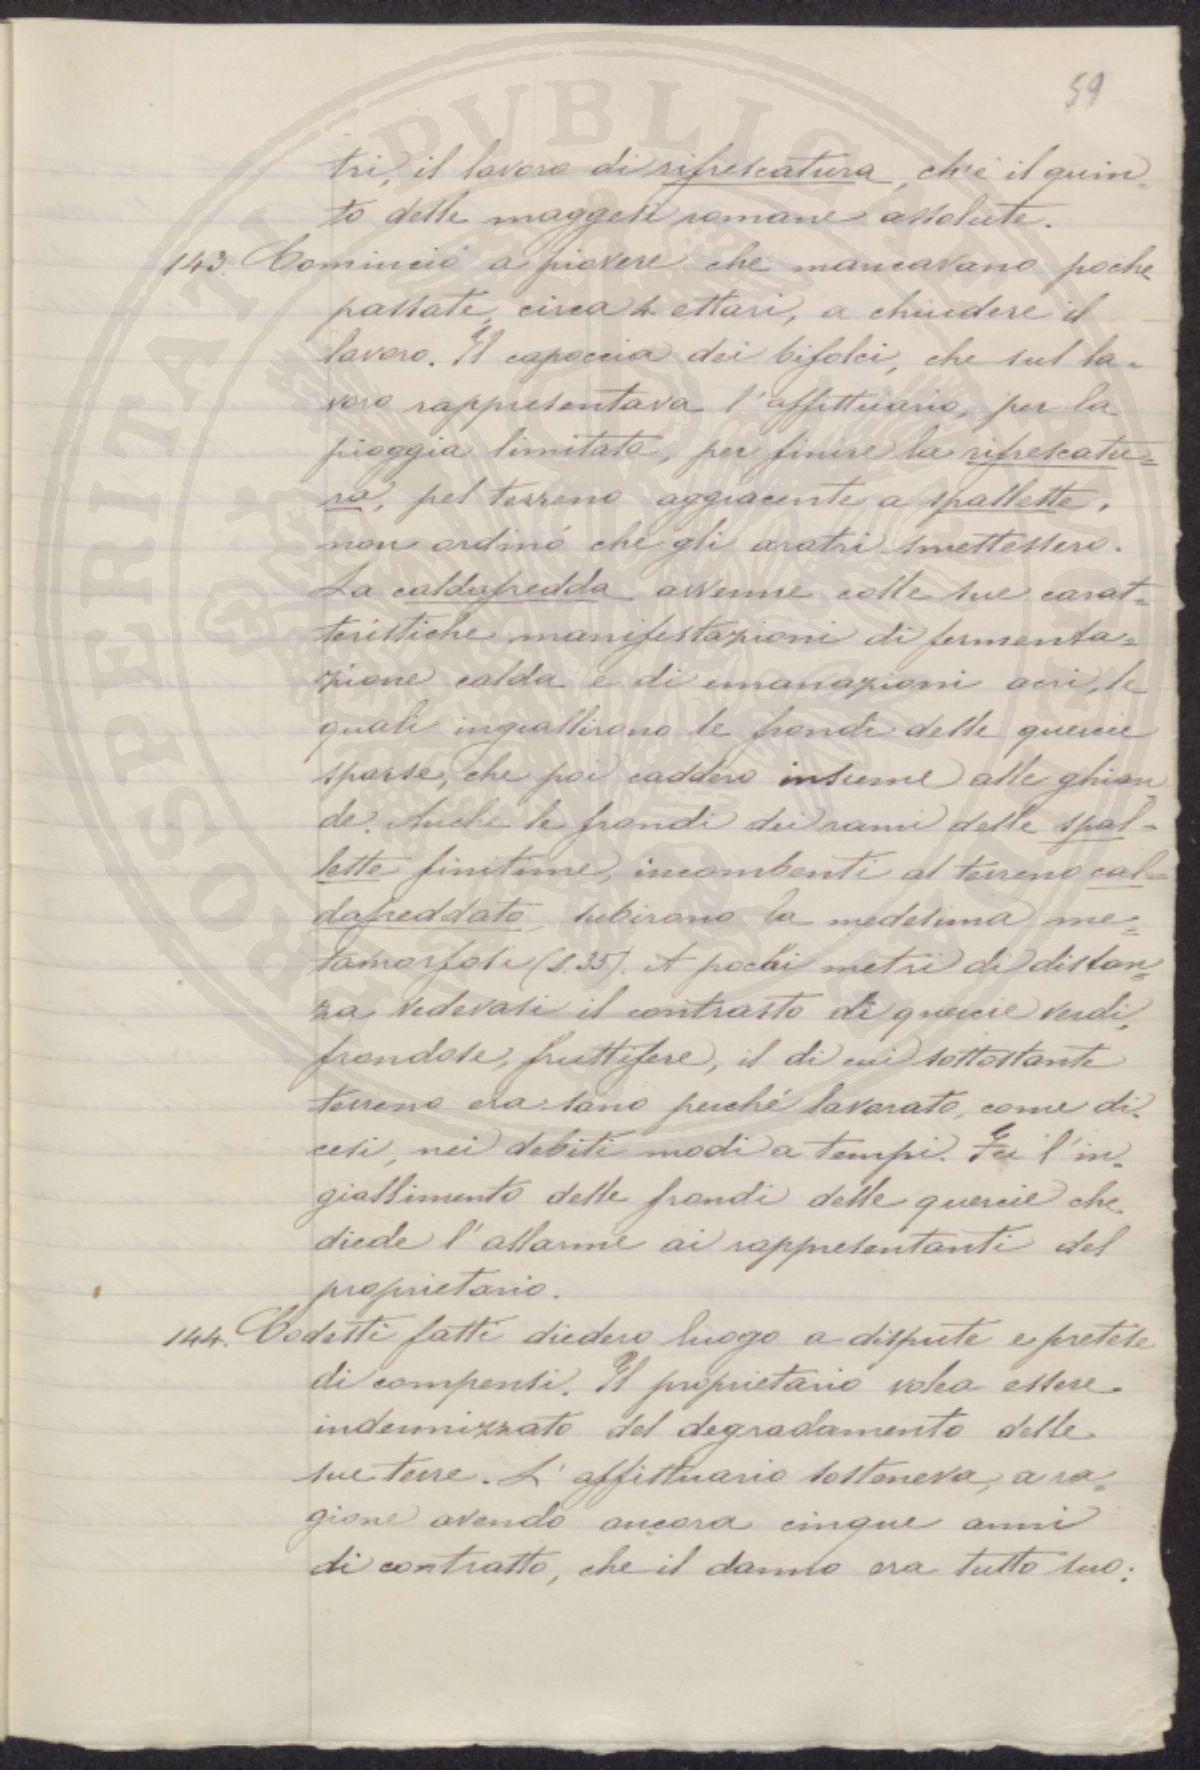 59
tri, il lavoro di rifrescatura, ch'è il quin-
to delle maggesi romane assolute.
143. Cominciò a piovere che mancavano poche
passate, circa 4 ettari, a chiudere il
lavoro. Il capoccia dei bifolci, che sul la-
voro rappresentava l'affittuario, per la
pioggia limitata, per finire la rifrescatu=
ra, pel terreno aggiacente a spallette,
non ordinò che gli aratri smettessero.
La caldafredda avvenne colle sue carat-
teristiche manifestazioni di fermenta=
zione calda e di emanazioni acri, le
quali ingiallirono le frondi delle quercie
sparse, che poi caddero insieme alle ghian
de. Anche le frondi dei rami delle spal-
lette finitime, incombenti al terreno cal-
dafreddato, subirono la medesima me-
tamorfosi (§.35). A pochi metri di distan-
za vedevasi il contrasto di quercie verdi,
frondose, fruttifere, il di cui sottostante
terreno era sano perchè lavorato, come di-
cesi, nei debiti modi a tempi. Fu l'in-
giallimento delle frondi delle quercie che
diede l'allarme ai rappresentanti del
proprietario.
144. Codesti fatti diedero luogo a dispute e pretese
di compensi. Il proprietario volea essere
indennizzato del degradamento delle
sue terre. L'affittuario sosteneva, a ra-
gione avendo ancora cinque anni
di contratto, che il danno era tutto suo:
PVBLICAE
PROSPERITATI